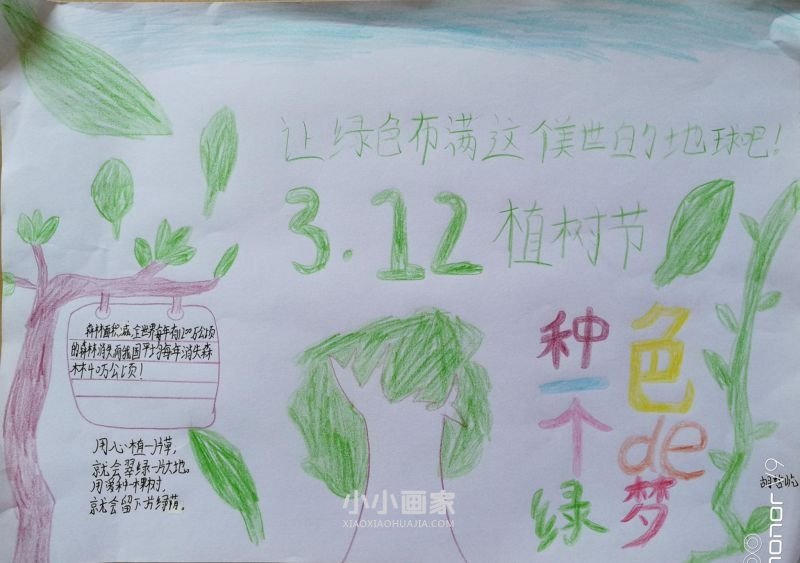 让绿色布满这个美世的地球吧!
3.12 植树节
森林面积减,全世界每年有1200万公顷
的森林消失而我国平均每年消失森
林40万公顷!
用心植一片草,
就会翠绿一片大地。
用爱种一棵树,
就会留下一方绿荫。
种一个绿
色de梦
小小画家
XIAOXIAOHUAJIA.COM
honor 9